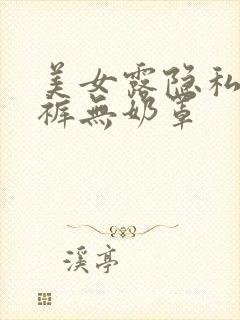 美女露隐私
裤無奶罩
溪亭